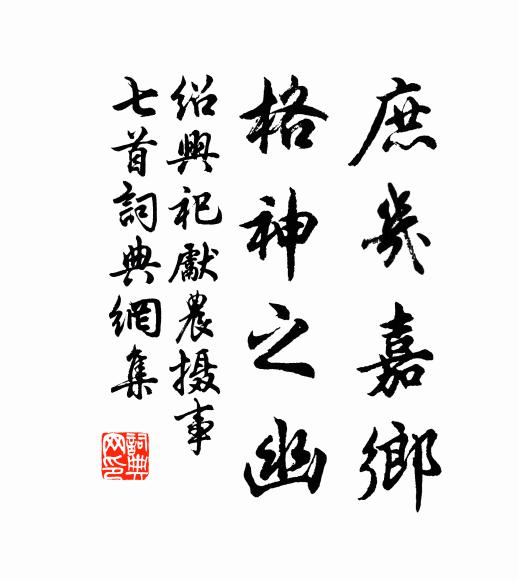 庶幾嘉鄉
格神之幽
紹興祀獻農攝事
七首詞典網集
詞典網印